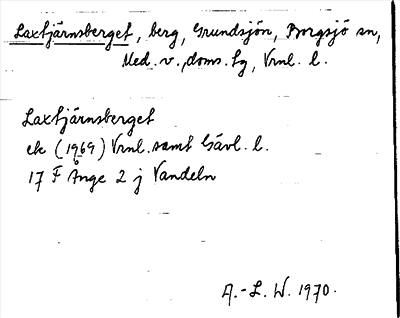 Laxtjärnsberget, berg, Grundsjön, Borgsjö sn,
Med. v., doms. tg, Vrnl. l.
Laxtjärnsberget
ek (1969) Vrnl. samt Gävl. l.
17 F Ånge 2 j Vandeln
A.-L. W. 1970.